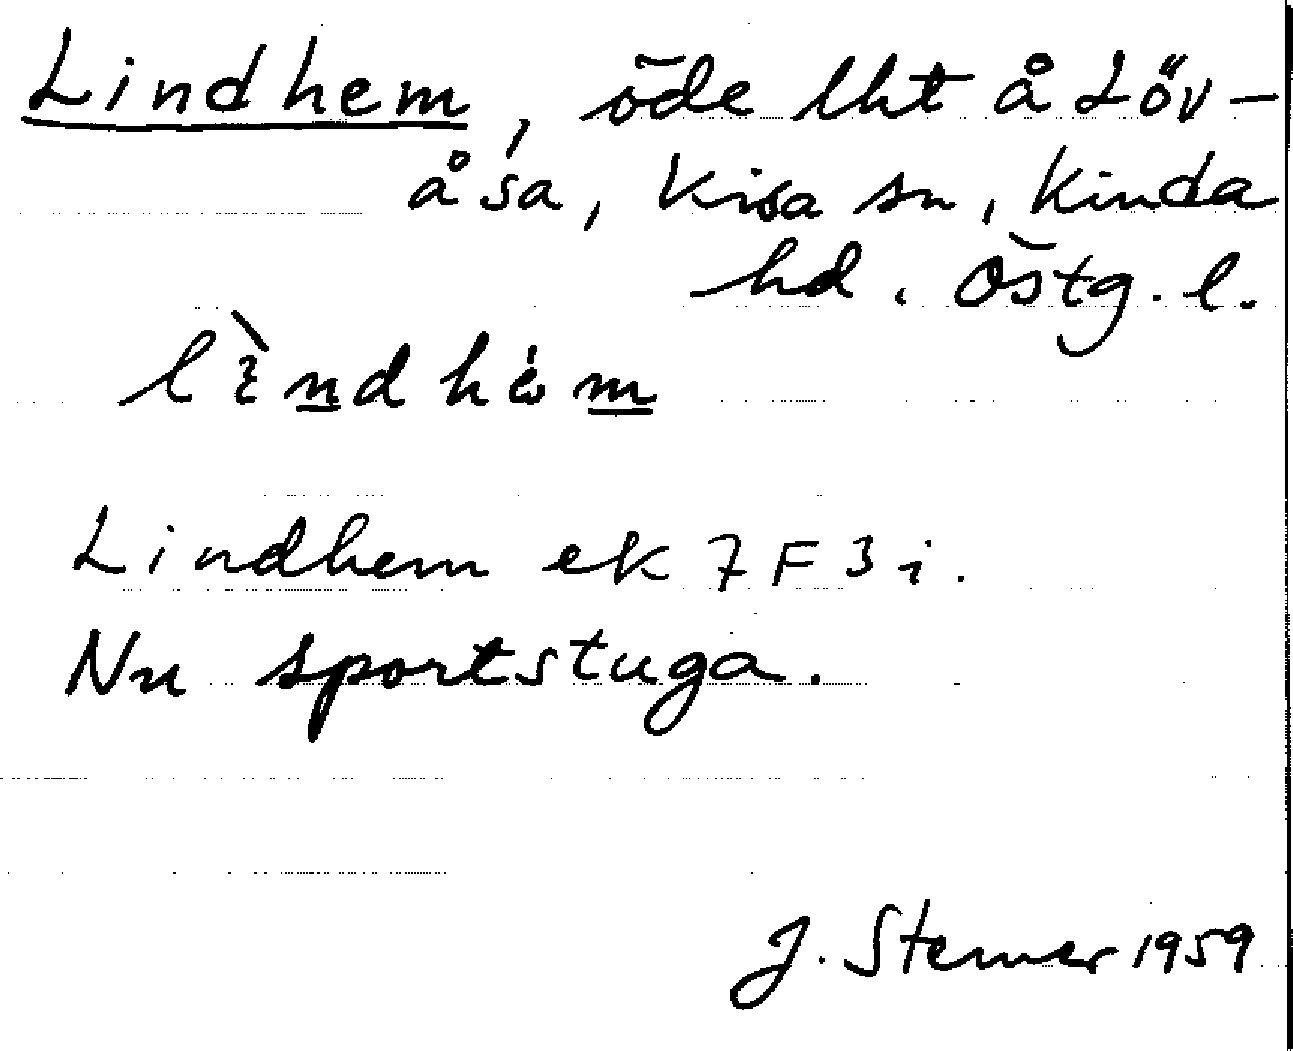 Lindhem, öde lht å Löv-
åsa, Kisa sn, Kinda
hd. Östg. l.
lìndhém
Lindhem ek 7F3i.
Nu sportstuga.
J. Sterner 1959